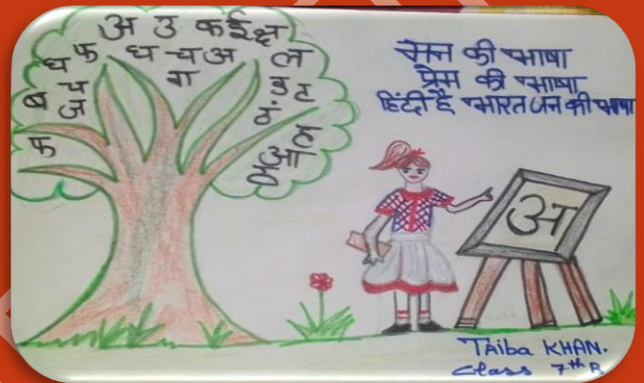 अ उ क ई क्ष
ध फ ध च अ ल
ब च ग ड ट
ज ठं
फ आ ल
मन की भाषा
प्रेम की भाषा
हिंदी है भारत जन की भाषा
अ
TAiba KHAN.
Class 7th B